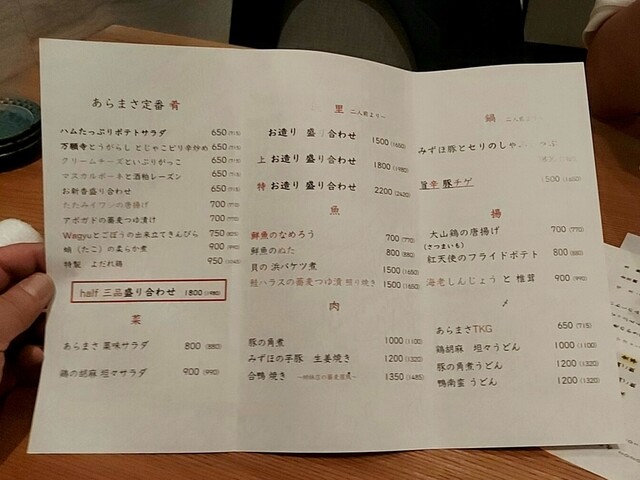 あらまさ定番 肴
ハムたっぷりポテトサラダ 650 (715)
万願寺とうがらし とじゃこピリ辛炒め 650 (715)
クリームチーズといぶりがっこ 650 (715)
マスカルポーネと酒粕レーズン 650 (715)
お新香盛り合わせ 650 (715)
たたみイワシの唐揚げ 700 (770)
アボガドの蕎麦つゆ漬け 700 (770)
Wagyuとごぼうの出来立てきんぴら 750 (825)
蛸（たこ）の柔らか煮 900 (990)
特製 よだれ鶏 950
half 三品盛り合わせ 1800 (1980)
菜
あらまさ 薬味サラダ 800 (880)
鶏の胡麻 坦々サラダ 900 (990)
里 二人前より〜
お造り 盛り合わせ 1500 (1650)
上 お造り 盛り合わせ 1800 (1980)
特 お造り 盛り合わせ 2200 (2420)
魚
鮮魚のなめろう 700 (770)
鮮魚のぬた 800 (880)
貝の 浜バケツ煮 1500 (1650)
鮭ハラスの蕎麦つゆ漬 照り焼き 1500 (1650)
肉
豚の角煮 1000 (1100)
みずほの芋豚 生姜焼き 1200 (1320)
合鴨 焼き 1350 (1485)
鍋 二人前より〜
みずほ豚とセリのしゃぶしゃぶ
旨辛 豚チゲ 1500 (1650)
揚
大山鶏の唐揚げ 700 (770)
(さつまいも)
紅天使のフライドポテト 800 (880)
海老しんじょう と 椎茸 900 (990)
〆
あらまさTKG 650 (715)
鶏胡麻 坦々うどん 1000 (1100)
豚の角煮うどん 1200 (1320)
鴨南蛮 うどん 1200 (1320)